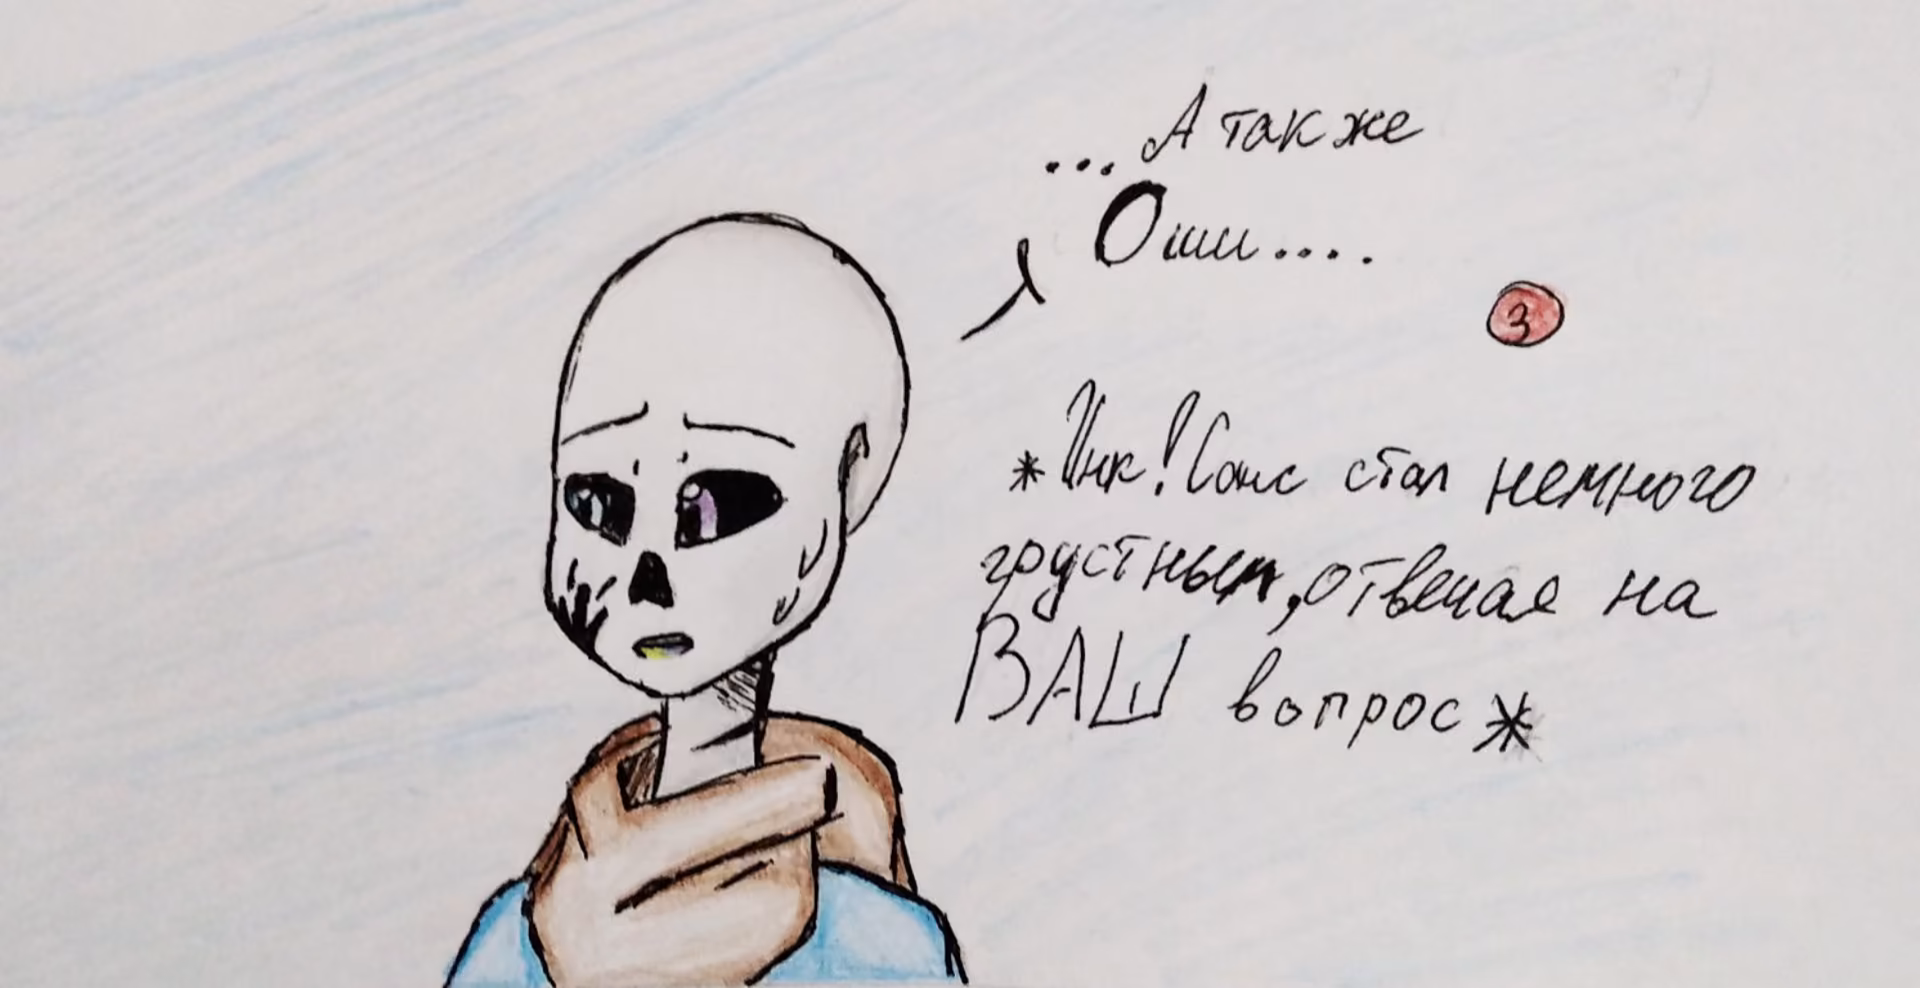 ... А также
Оши....
3
*Инк! Санс стал немного
грустным, отвечая на
ВАШ вопрос*